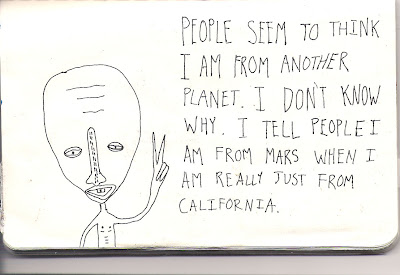 PEOPLE SEEM TO THINK
I AM FROM ANOTHER
PLANET. I DON'T KNOW
WHY. I TELL PEOPLE I
AM FROM MARS WHEN I
AM REALLY JUST FROM
CALIFORNIA.